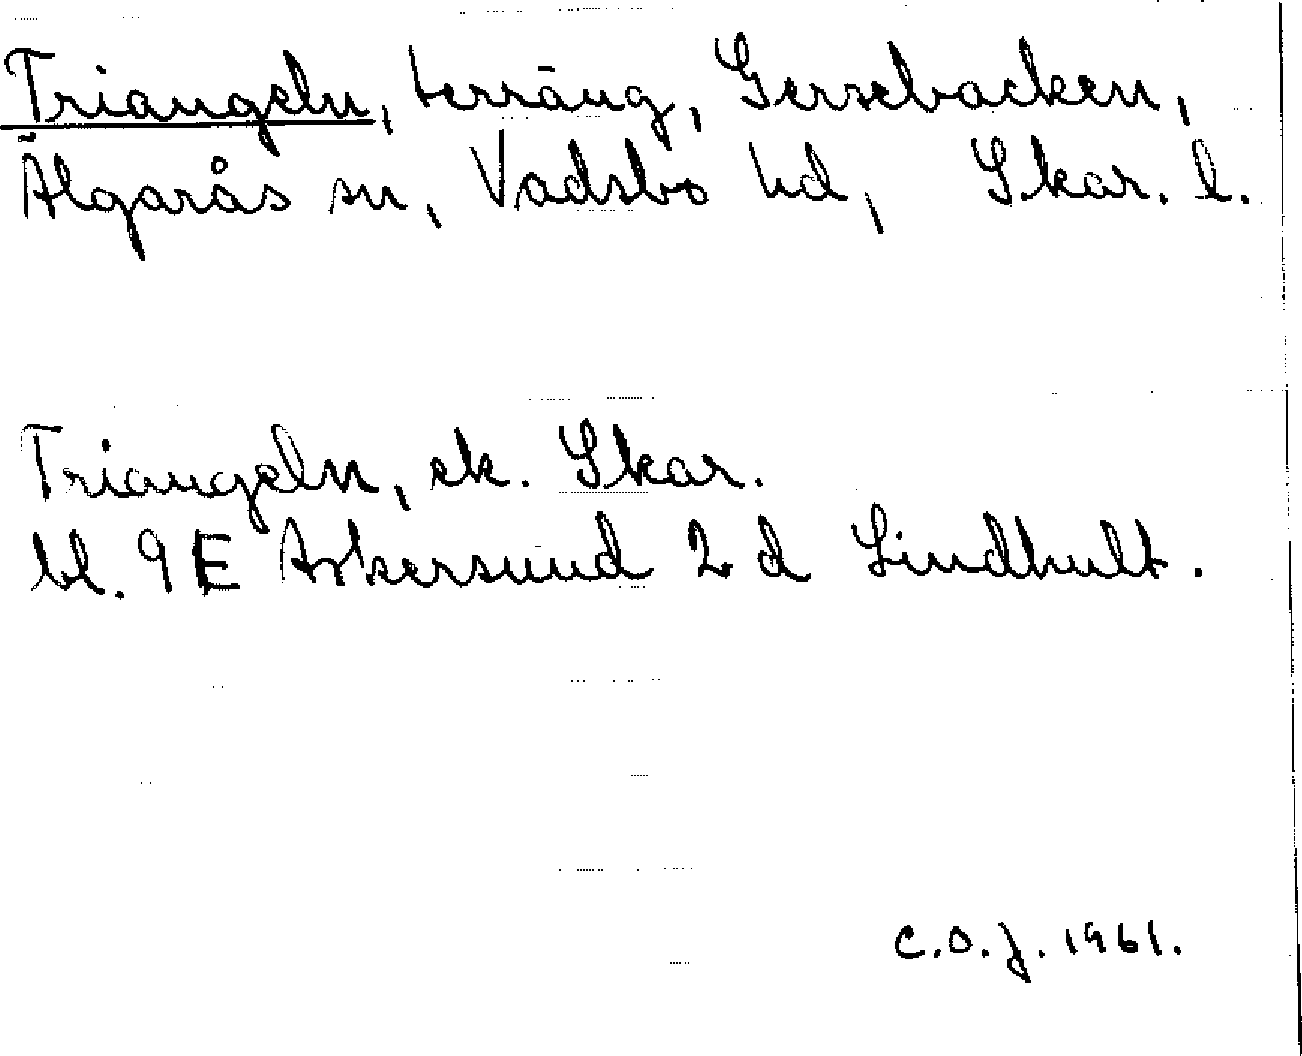 Triangeln, terräng, Gerrebacken,
Älgarås sn, Vadsbo hd, Skar. l.
Triangeln, ek. Skar.
bl. 9 E Askersund 2 d Lindhult.
C.O.J. 1961.